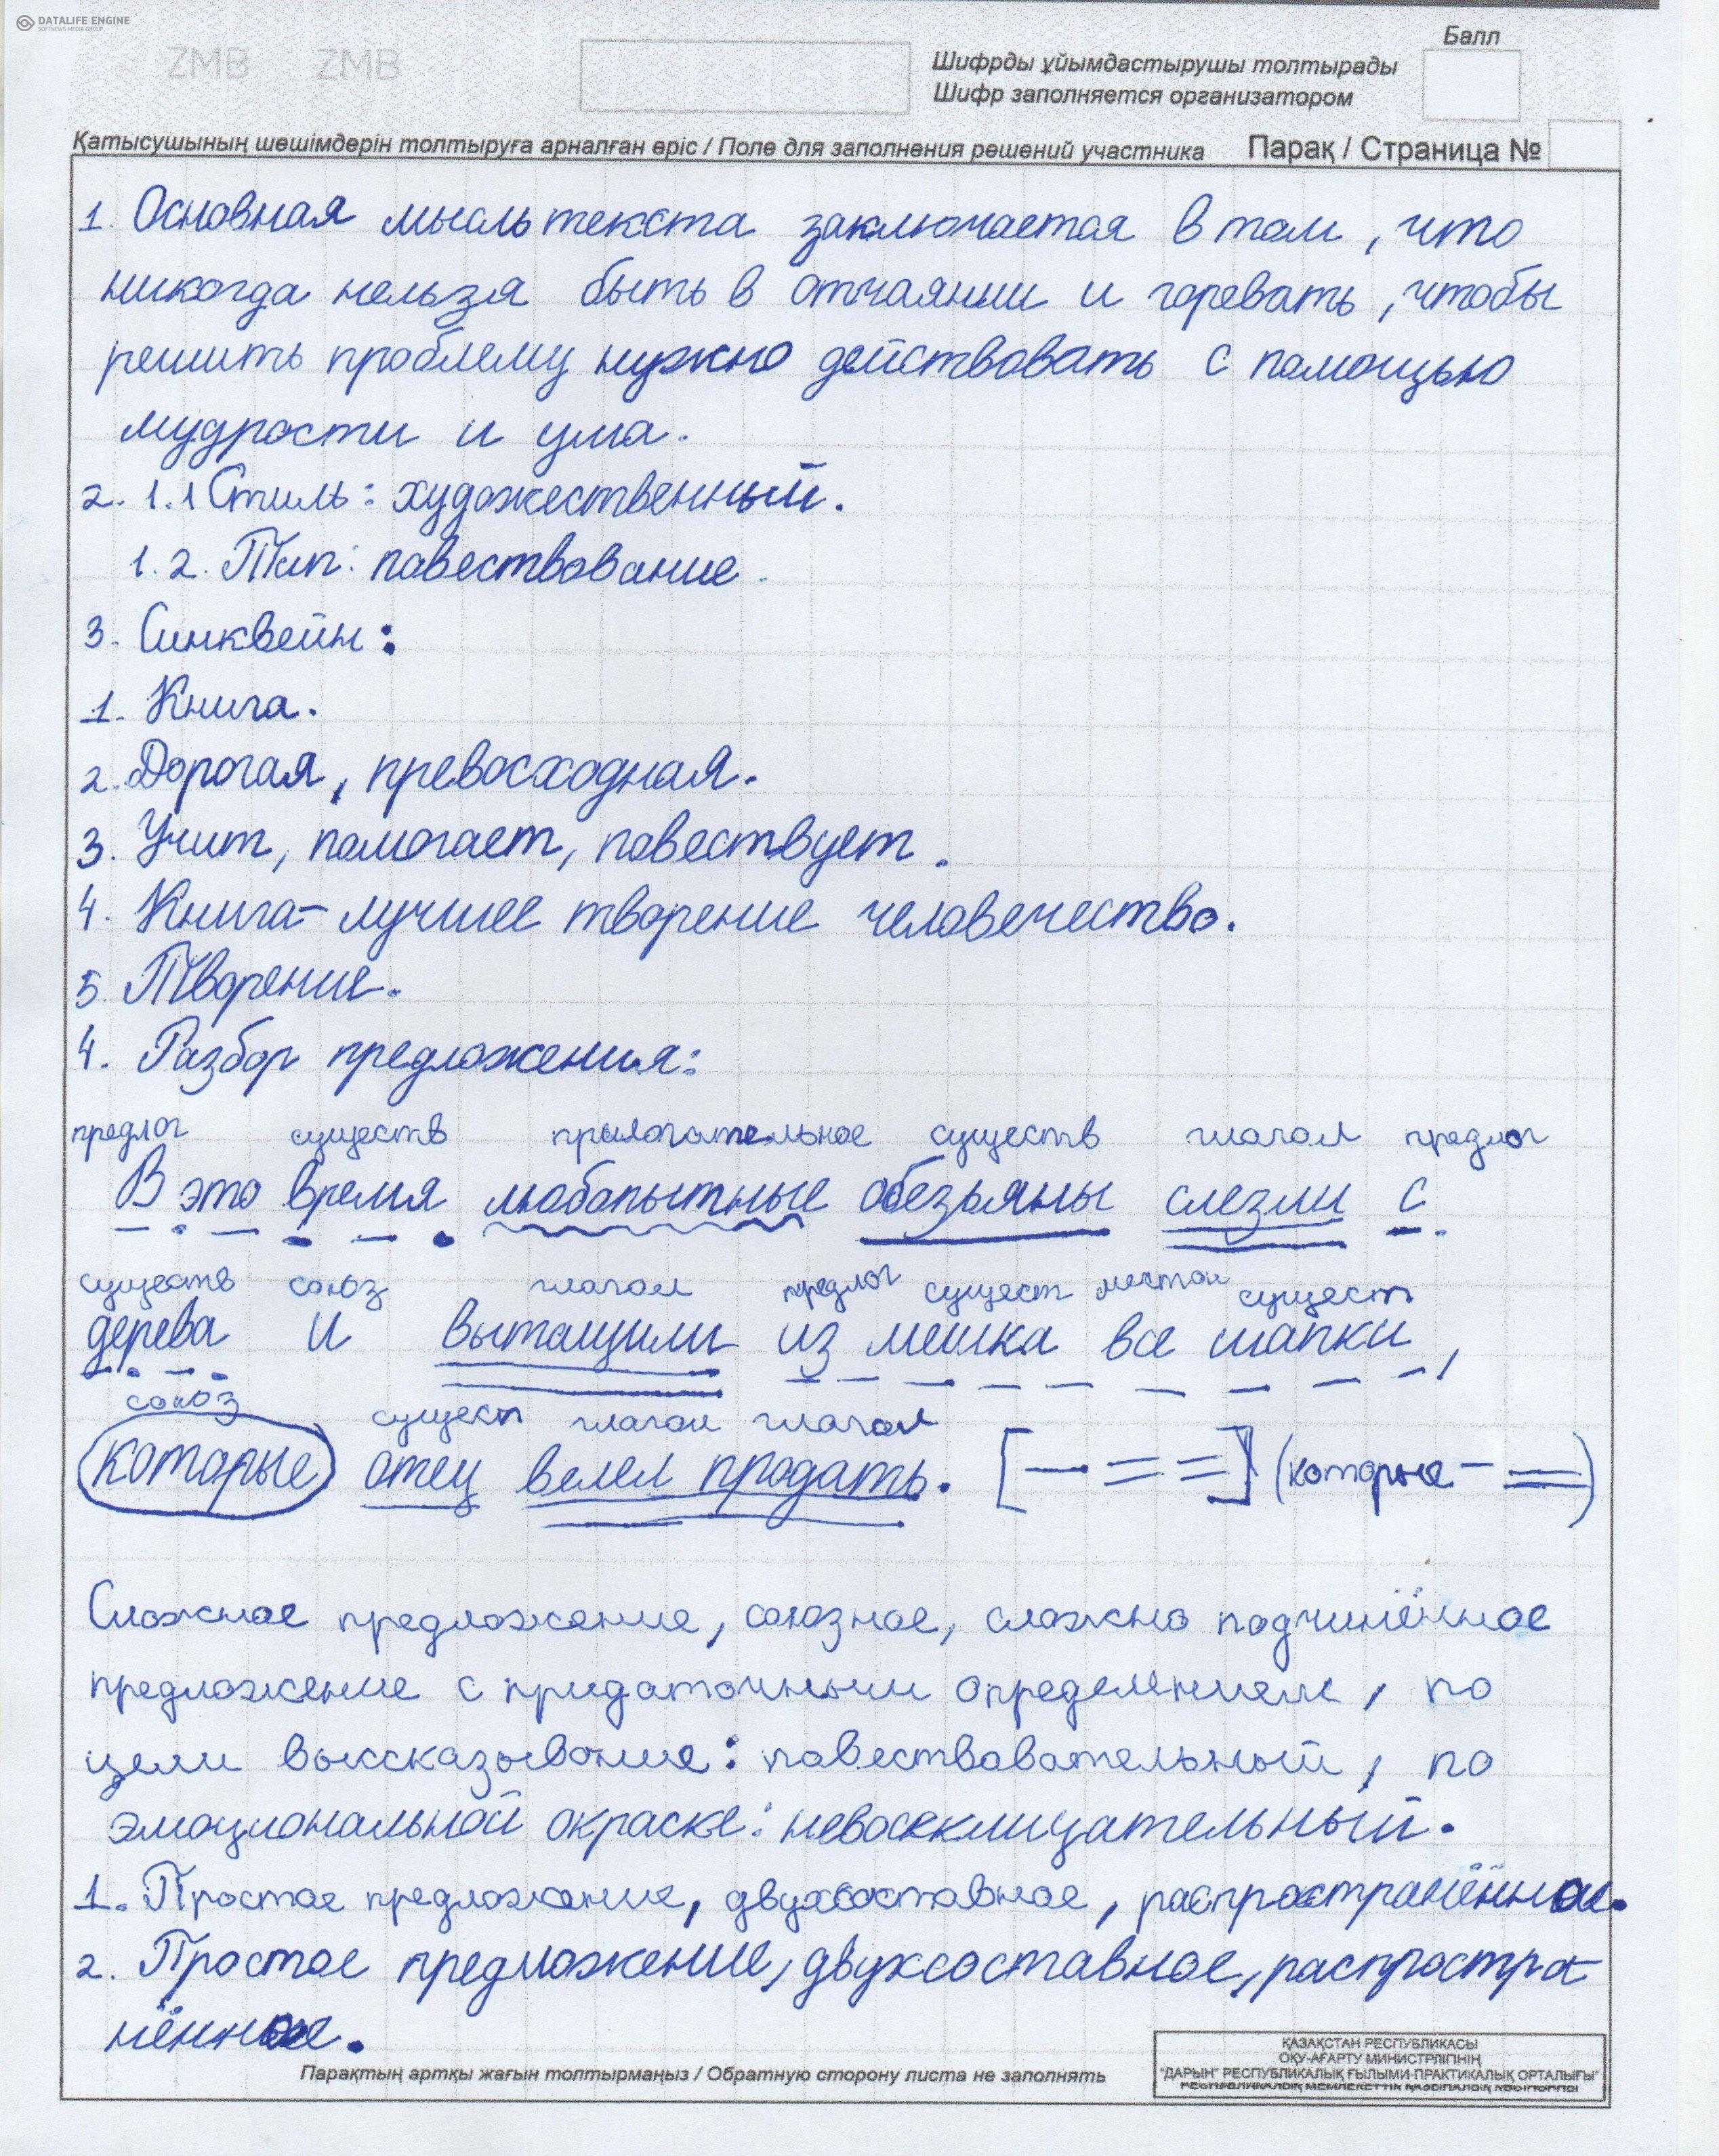 DATALIFE ENGINE
SOFTNEWS MEDIA GROUP
ZMB ZMB
Балл
Шифрды ұйымдастырушы толтырады
Шифр заполняется организатором
Қатысушының шешімдерін толтыруға арналған өріс / Поле для заполнения решений участника Парақ / Страница №
1. Основная мысль текста заключается в том, что
никогда нельзя быть в отчаянии и горевать, чтобы
решить проблему нужно действовать с помощью
мудрости и ума.
2. 1.1 Стиль: художественный.
1.2. Тип: повествование.
3. Синквейн:
1. Книга.
2. Дорогая, превосходная.
3. Учит, помогает, повествует.
4. Книга – лучшее творение человечество.
5. Творение.
4. Разбор предложения:
предлог существ прилогательное существ глагол предлог
В это время любопытные обезьяны слезли с
существ союз глагол предлог сущест местои сущест
дерева и вытащили из мешка все шапки,
союз сущест глагол глагол
которые отец велел продать. [— = =] (которые – =)
Сложное предложение, союзное, сложно подчинённое
предложение с придаточным определением, по
цели выссказывание: повествовательный, по
эмоциональной окраске: невосклицательный.
1. Простое предложение, двухсоставное, распространённое.
2. Простое предложение, двухсоставное, распростра
нённое.
Парақтың артқы жағын толтырмаңыз / Обратную сторону листа не заполнять
ҚАЗАҚСТАН РЕСПУБЛИКАСЫ
ОҚУ-АҒАРТУ МИНИСТРЛІГІНІҢ
"ДАРЫН" РЕСПУБЛИКАЛЫҚ ҒЫЛЫМИ-ПРАКТИКАЛЫҚ ОРТАЛЫҒЫ"